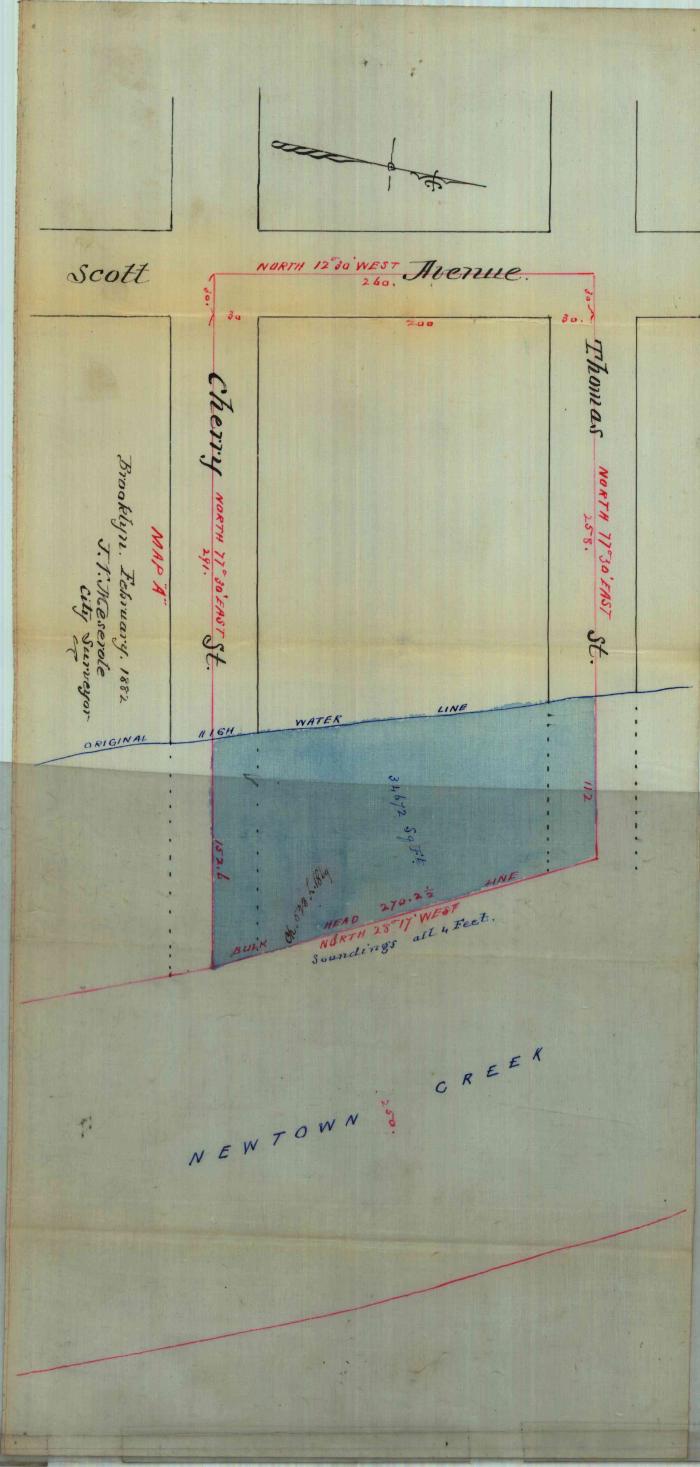 Scott Avenue.
NORTH 12°30' WEST
260.
30.
30
30
200
30.
Cherry St.
NORTH 77°30' EAST
291.
Thomas St.
NORTH 77°30' EAST
258.
MAP "A"
Brooklyn. February. 1882
J. V. Meserole
City Surveyor
ORIGINAL HIGH WATER LINE
34672 Sq Ft.
152.6
112
BULK HEAD 270.2½ LINE
NORTH 28°17' WEST
Soundings all 4 Feet.
NEWTOWN CREEK
250.